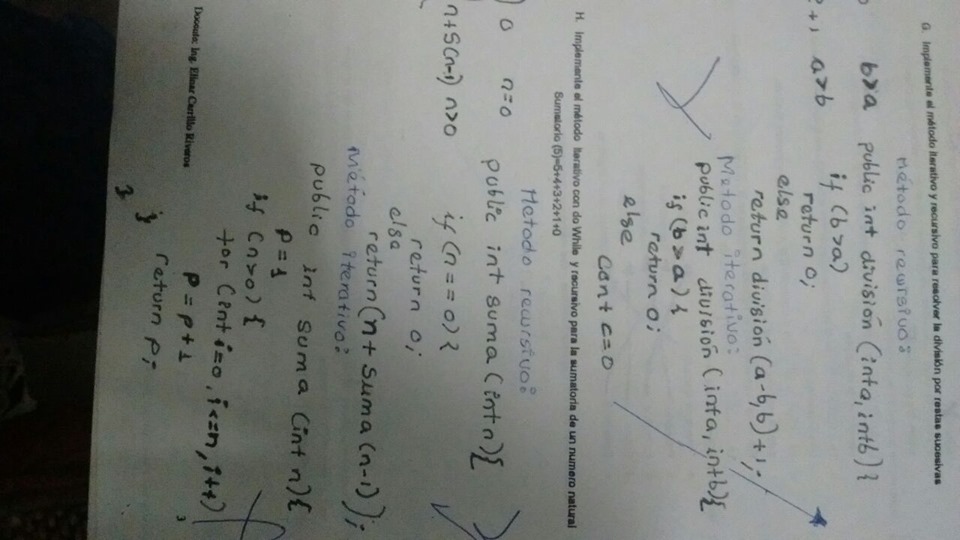 G. Implemente el método iterativo y recursivo para resolver la división por restas sucesivas
Método recursivo:
b>a public int división (int a, int b) {
+1 a>b if (b>a)
return 0;
else
return división (a-b,b)+1;
Metodo iterativo:
public int división (int a, int b){
if (b>a) {
return 0;
else
cont c=0
H. Implemente el método iterativo con do While y recursivo para la sumatoria de un numero natural
Sumatorio (5)=5+4+3+2+1+0
Metodo recursivo:
0 n=0 public int suma (int n){
n+S(n-1) n>0 if (n==0) {
return 0;
else
return (n + suma (n-1));
Método iterativo:
public int suma (int n){
p=1
if (n>0) {
for (int i=0, i<=n, i++)
p = p+1
return p;
}
}
Docente: Ing. Elinar Carrillo Riveros
3